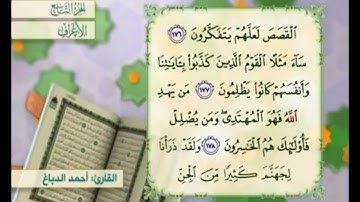 الجزء التاسع
الأعراف
ٱلْقَصَصَ لَعَلَّهُمْ يَتَفَكَّرُونَ ١٧٦
سَآءَ مَثَلًا ٱلْقَوْمُ ٱلَّذِينَ كَذَّبُوا۟ بِـَٔايَٰتِنَا
وَأَنفُسَهُمْ كَانُوا۟ يَظْلِمُونَ ١٧٧ مَن يَهْدِ
ٱللَّهُ فَهُوَ ٱلْمُهْتَدِى وَمَن يُضْلِلْ
فَأُو۟لَٰٓئِكَ هُمُ ٱلْخَٰسِرُونَ ١٧٨ وَلَقَدْ ذَرَأْنَا
لِجَهَنَّمَ كَثِيرًا مِّنَ ٱلْجِنِّ
القارئ: أحمد الدباغ